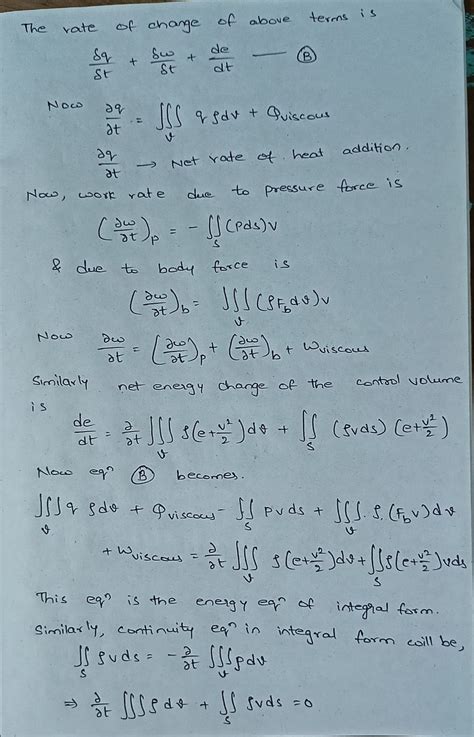 The rate of change of above terms is
δq/δt + δω/δt + de/dt — (B)
Now ∂q/∂t = ∭_v q ρdv + Qviscous
∂q/∂t → Net rate of heat addition.
Now, work rate due to pressure force is
(∂ω/∂t)_p = - ∬_s (Pds)v
& due to body force is
(∂ω/∂t)_b = ∭_v (ρF_b dv)v
Now ∂ω/∂t = (∂ω/∂t)_p + (∂ω/∂t)_b + Wviscous
Similarly net energy change of the control volume
is
de/dt = ∂/∂t ∭_v ρ(e+v²/2)dv + ∬_s (ρvds) (e+v²/2)
Now eqn (B) becomes.
∭_v q ρdv + Qviscous - ∬_s Pvds + ∭_v ρ. (F_b v)dv
+ Wviscous = ∂/∂t ∭_v ρ(e+v²/2)dv + ∬_s ρ(e+v²/2)vds
This eqn is the energy eqn of integral form.
Similarly, continuity eqn in integral form will be,
∬_s ρvds = - ∂/∂t ∭_v ρdv
⇒ ∂/∂t ∭ ρdv + ∬_s ρvds = 0